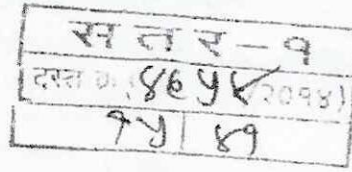 स त र - १
दस्त क्र. ४६५४/२०१४)
१५ | ४१